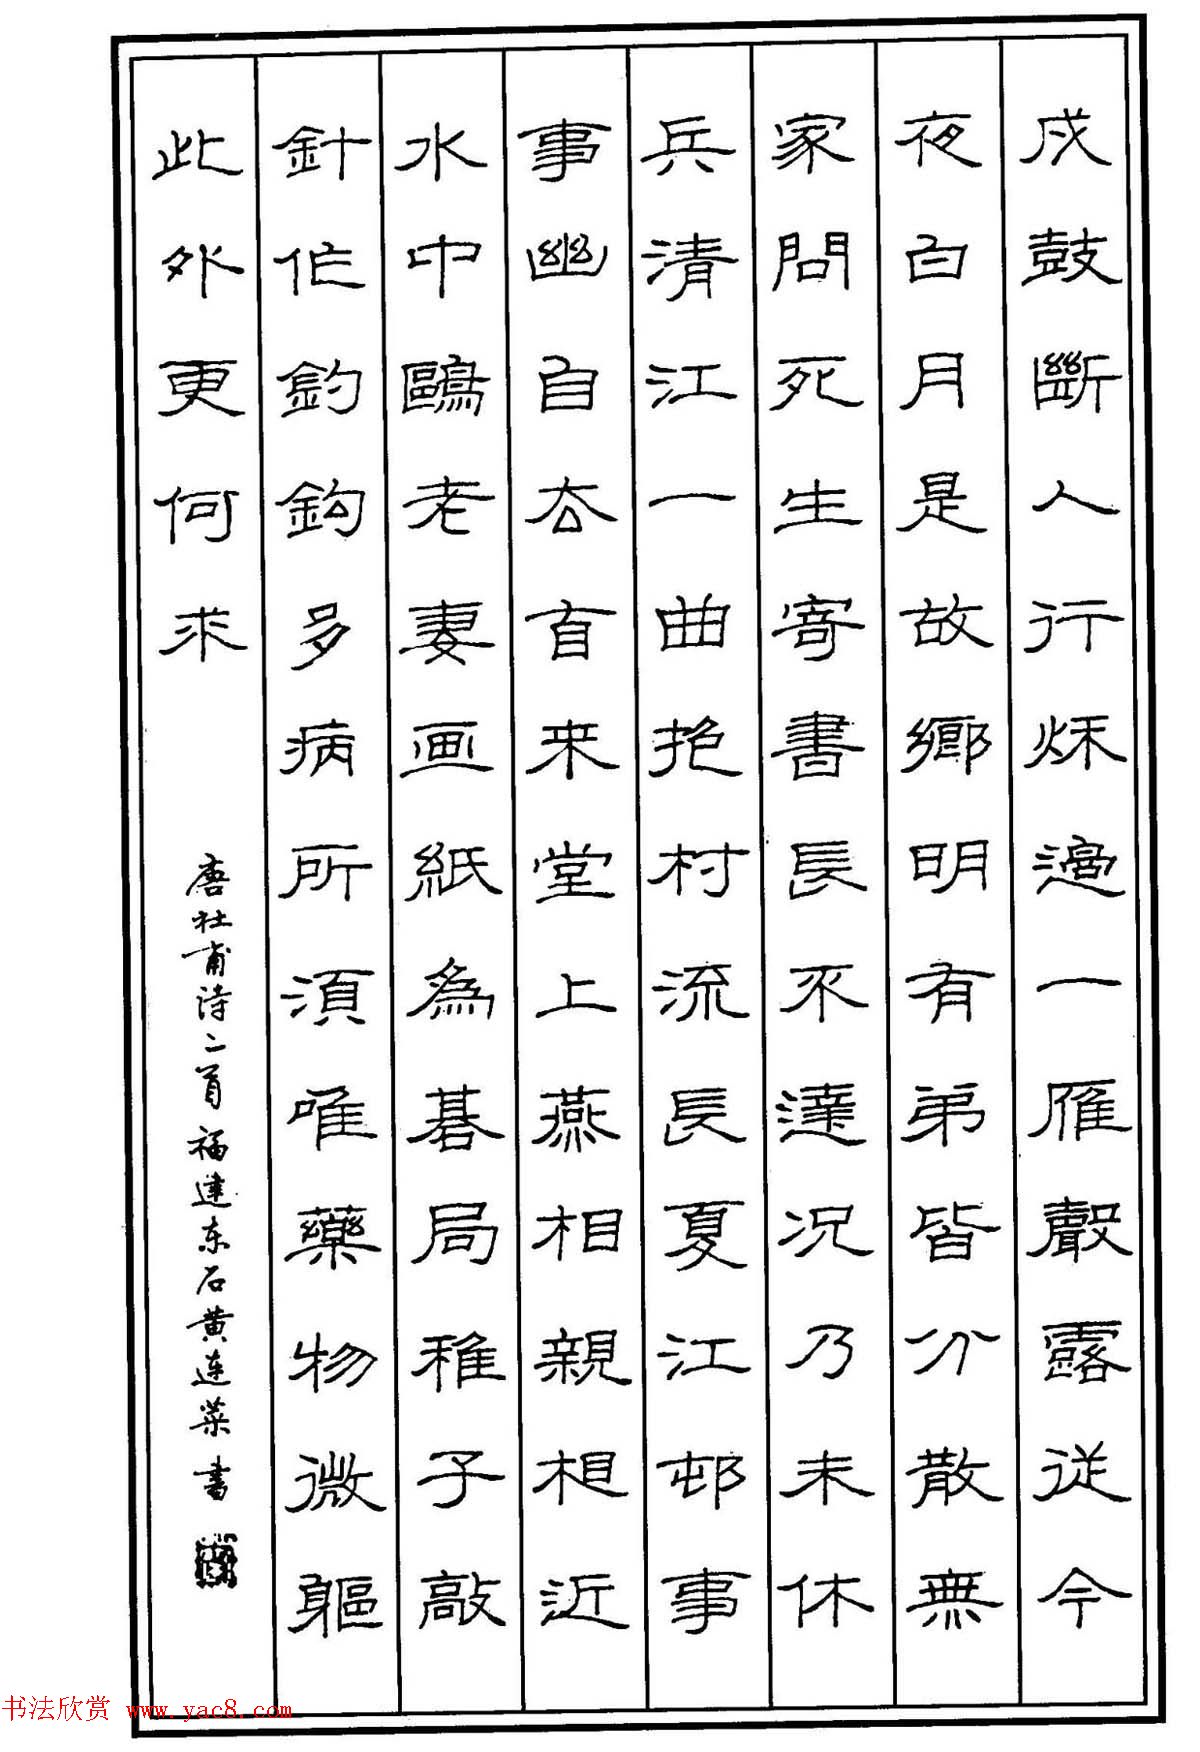 戍鼓斷人行秌邊一雁聲露從今
夜白月是故鄉明有弟皆分散無
家問死生寄書長不達况乃未休
兵清江一曲抱村流長夏江邨事
事幽自去自来堂上燕相親相近
水中鷗老妻画紙為碁局稚子敲
針作釣鈎多病所須唯藥物微軀
此外更何求
唐杜甫诗二首福建东石黄连菜书
书法欣赏 www.yac8.com